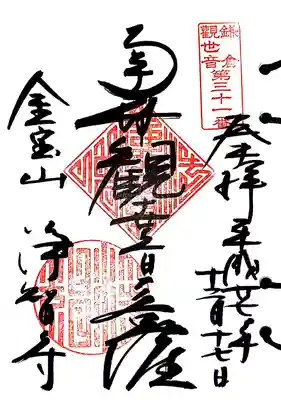 鎌倉
觀世音第三十一番
奉拝 平成廿七年
十二月十七日
南無觀世音菩薩
金宝山 淨智寺